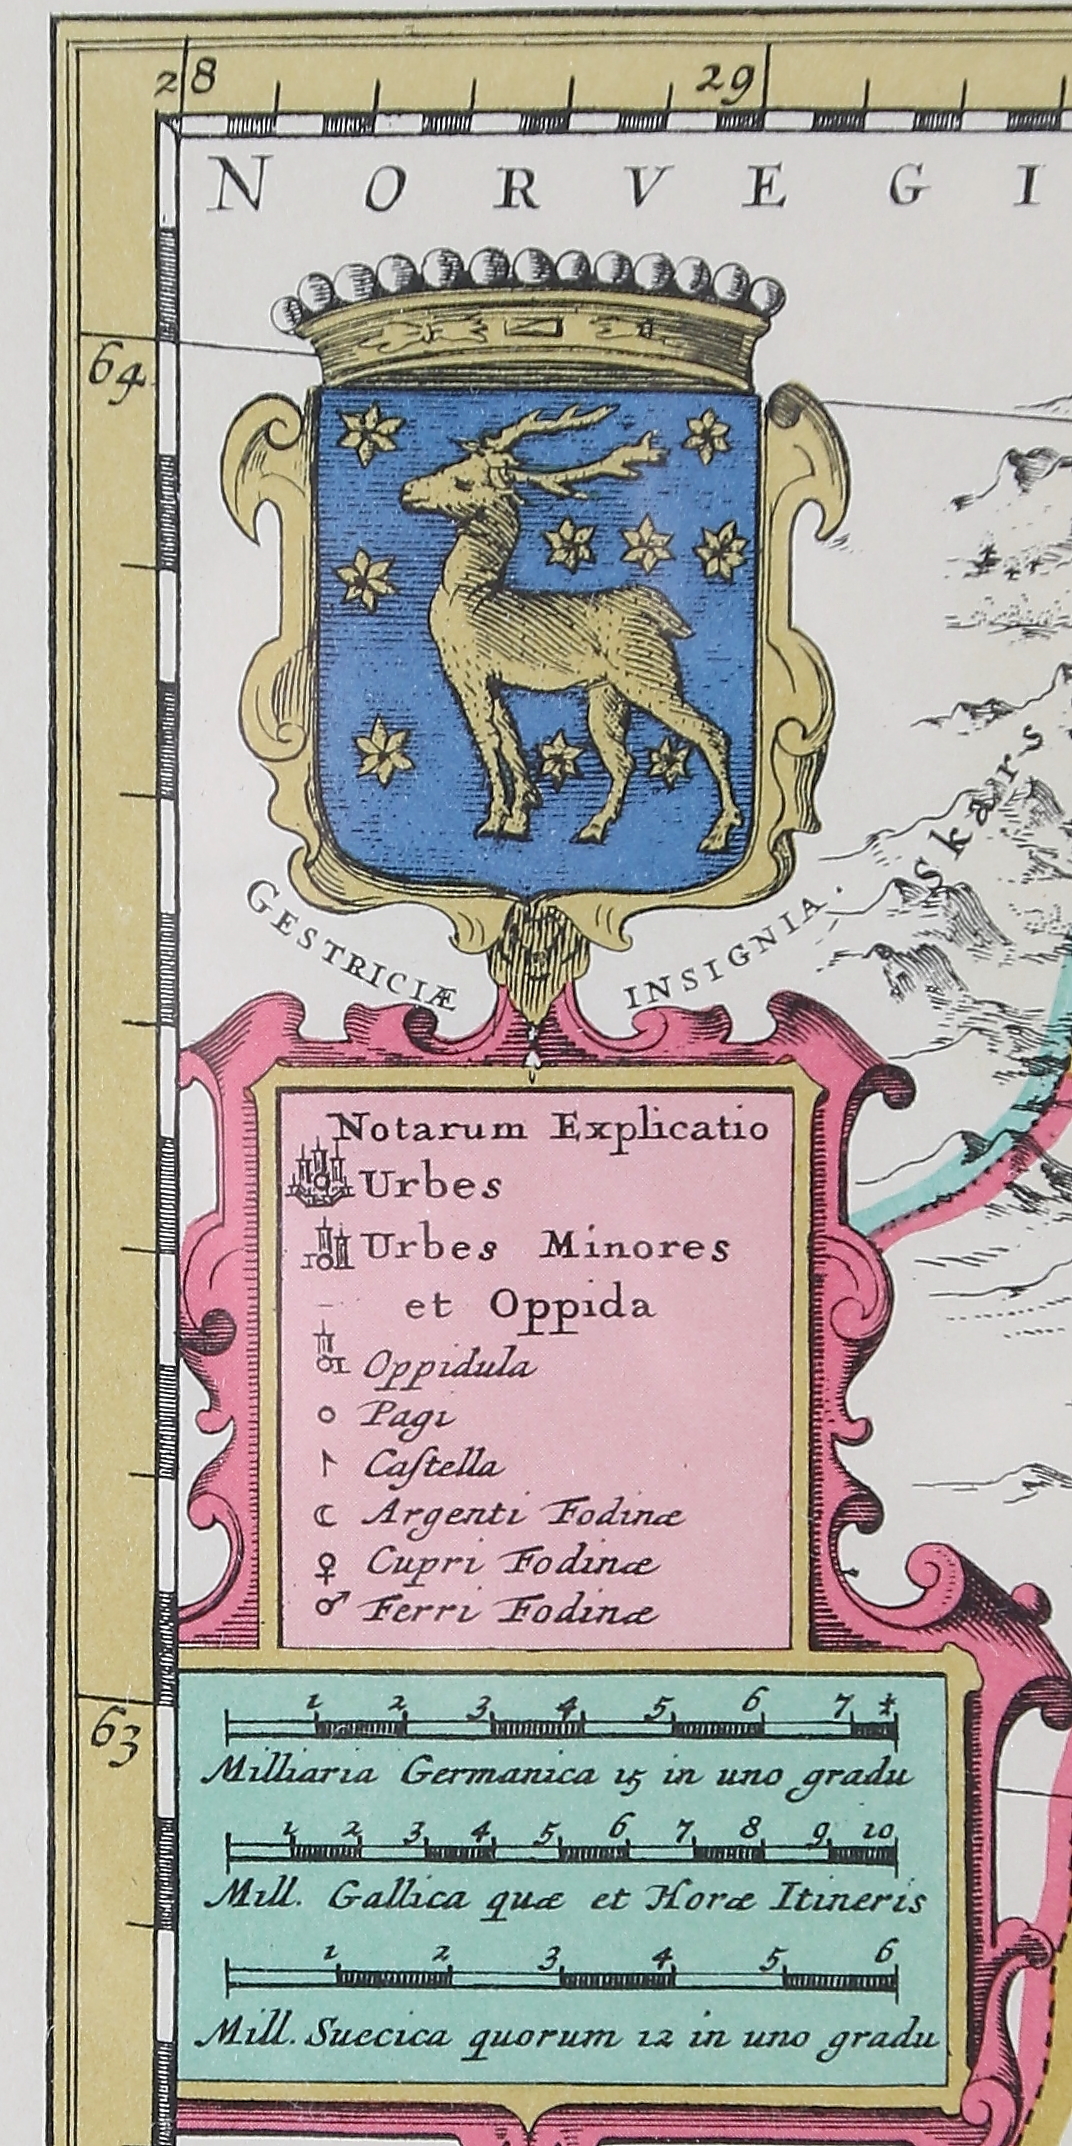 28 29
N O R V E G I
64
GESTRICIÆ INSIGNIA.
Skars
Notarum Explicatio
Urbes
Urbes Minores
et Oppida
Oppidula
Pagi
Caſtella
Argenti Fodinæ
Cupri Fodinæ
Ferri Fodinæ
63
1 2 3 4 5 6 7 ½
Milliaria Germanica 15 in uno gradu
1 2 3 4 5 6 7 8 9 10
Mill. Gallica quæ et Horæ Itineris
1 2 3 4 5 6
Mill. Suecica quorum 12 in uno gradu